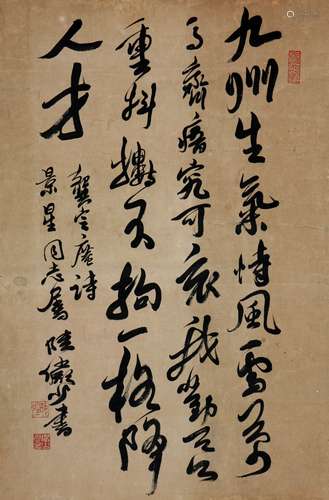 九州生氣恃風雷萬
馬齊瘖究可哀我勸天公
重抖擻不拘一格降
人才
龔定庵詩
景星同志屬 陸儼少書